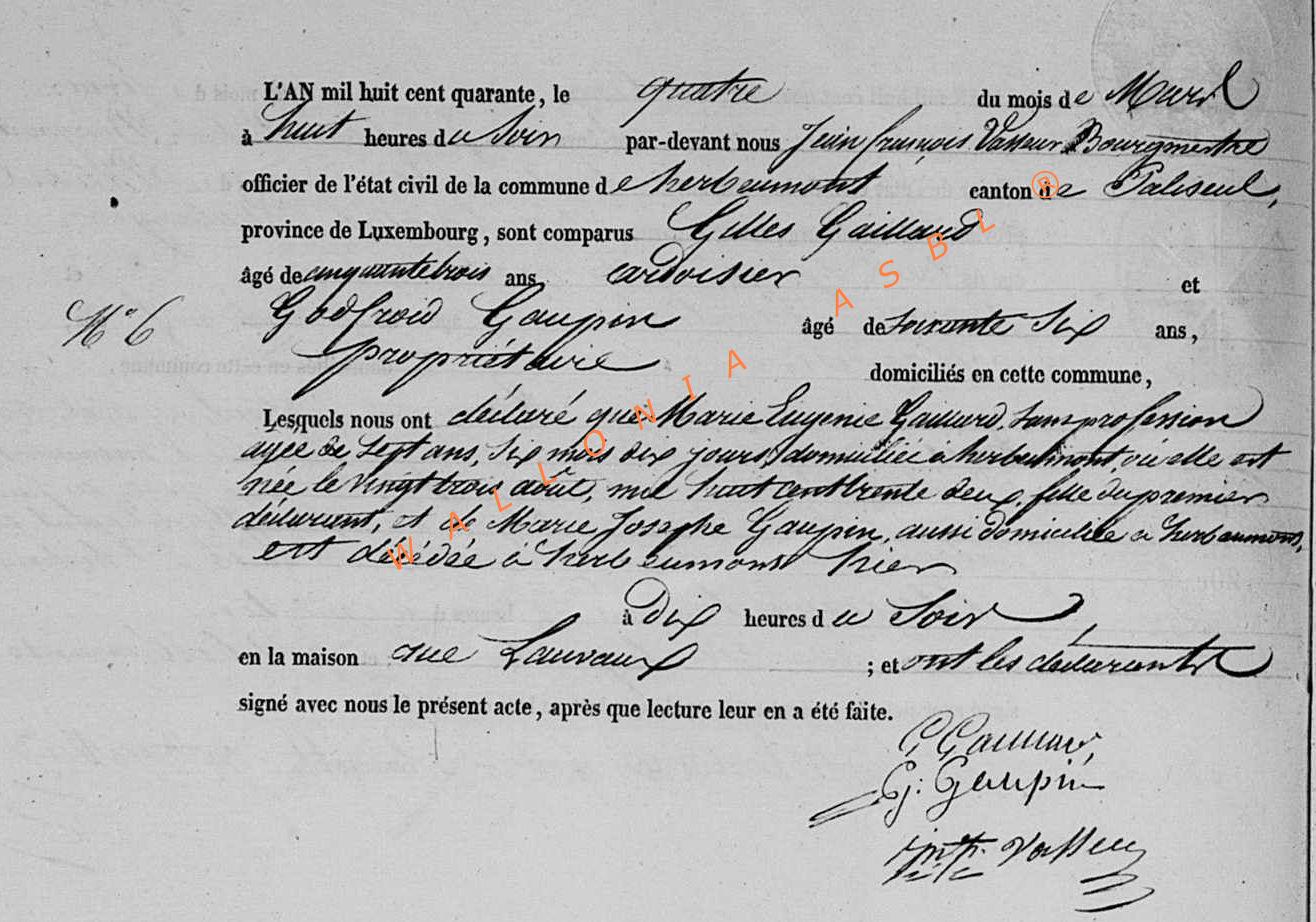 L'AN mil huit cent quarante, le quatre du mois de Mars
à huit heures du Soir par-devant nous Jean françois Vasseur Bourgmestre
officier de l'état civil de la commune de herbeumont canton de Paliseul,
province de Luxembourg, sont comparus Gilles Gaillard
âgé de cinquante trois ans, ardoisier et
N° 6 Godfroid Gaupin âgé de soixante Six ans,
propriétaire domiciliés en cette commune,
Lesquels nous ont déclaré que Marie Eugenie Gaillard, sans profession
agée de Sept ans, Six mois dix jours, domiciliée à herbeumont, où elle est
née le vingt trois août, mil huit cent trente deux, fille du premier
déclarant, et de Marie Josephe Gaupin, aussi domiciliée à herbeumont,
est décédée à herbeumont hier
à Dix heures du Soir
en la maison rue Lauvaux ; et ont les déclarants
signé avec nous le présent acte, après que lecture leur en a été faite.
G Gaillard
G. Gaupin
Vasseur
WALLONIA ASBL ®